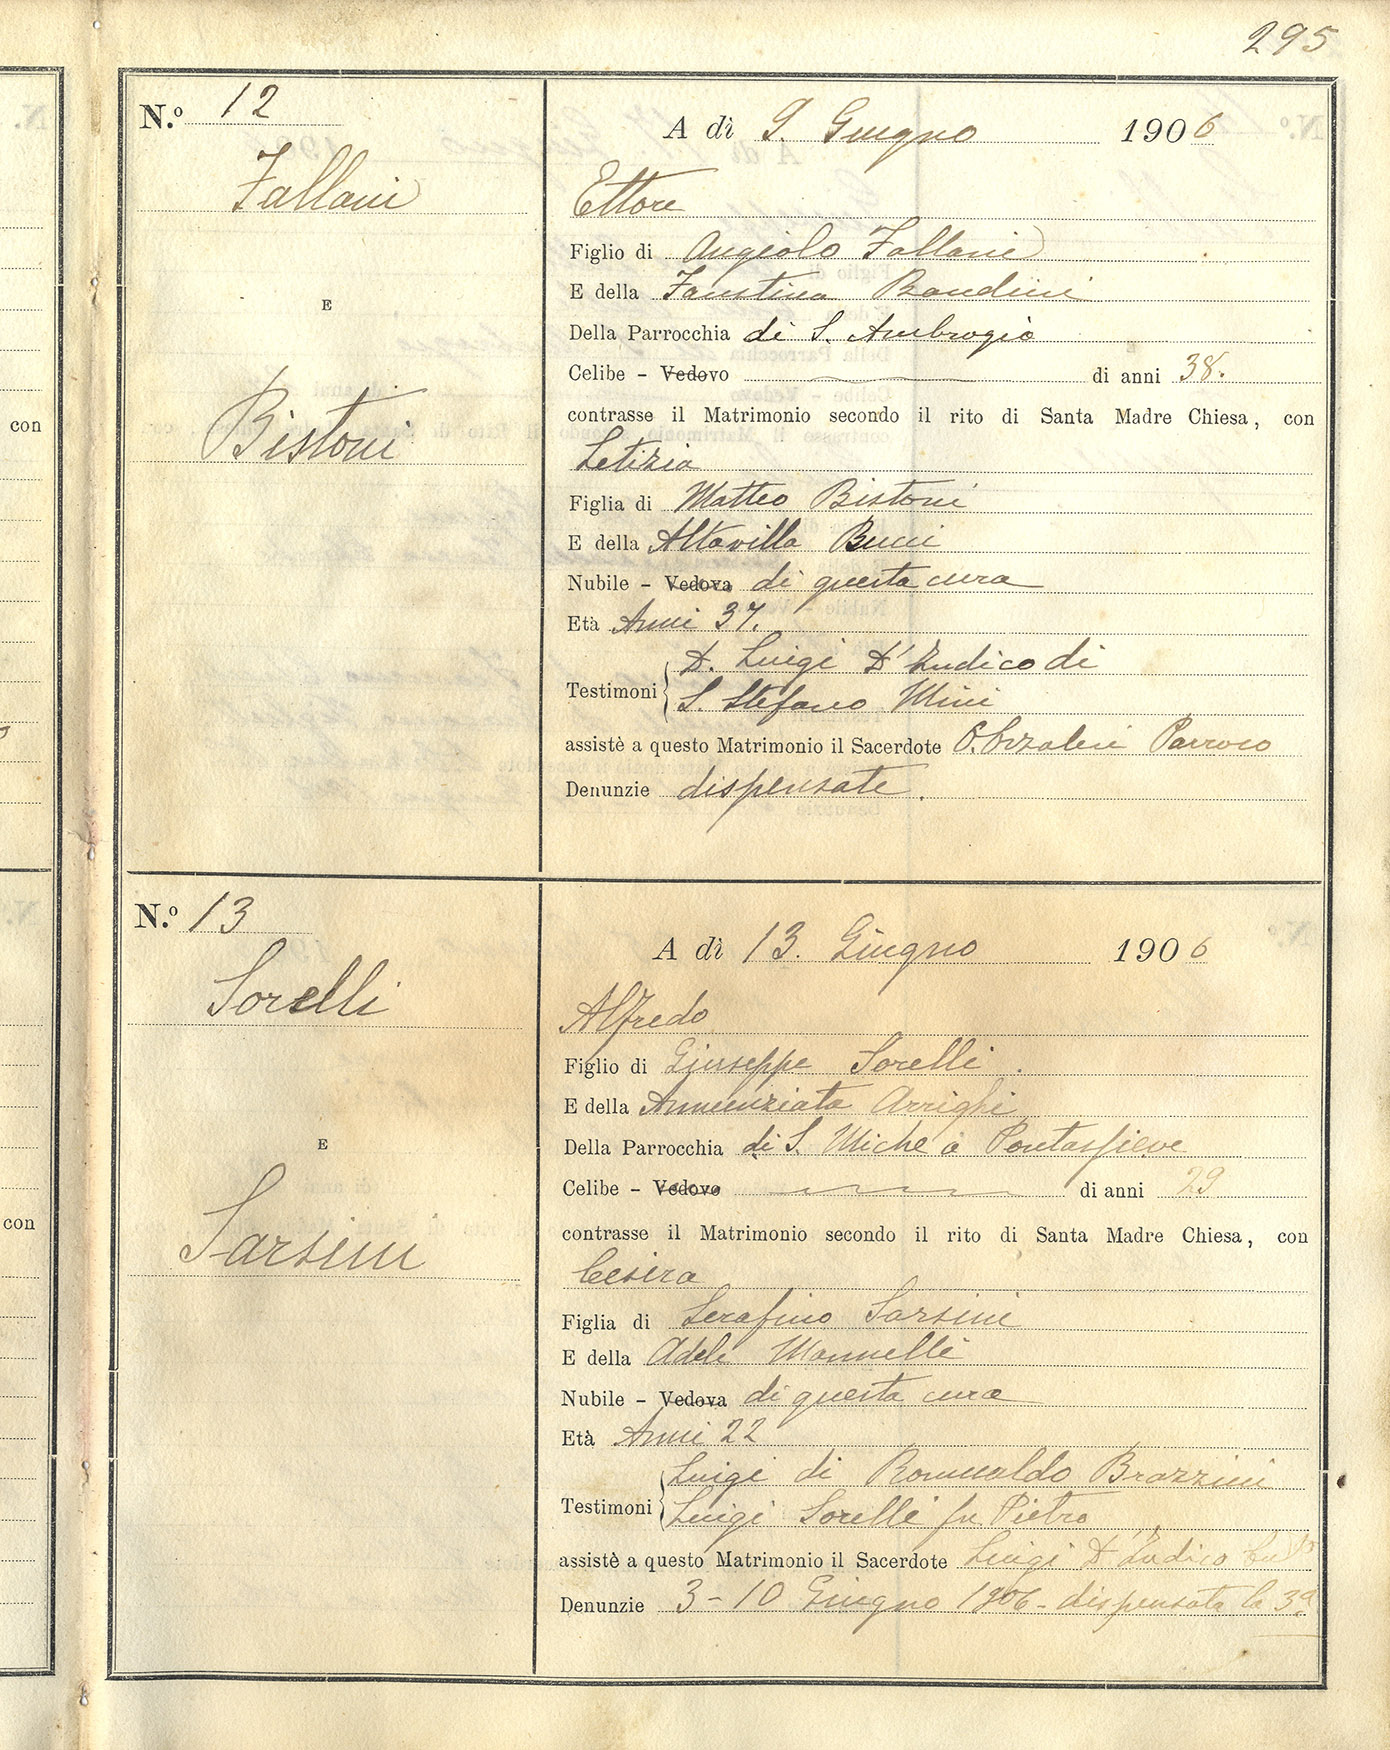 295
N.º 12
Fallani
E
Bistoni
A dì 9. Giugno 1906
Ettore
Figlio di Angiolo Fallani
E della Faustina Bandini
Della Parrocchia di S. Ambrogio
Celibe – Vedovo di anni 38.
contrasse il Matrimonio secondo il rito di Santa Madre Chiesa, con
Letizia
Figlia di Matteo Bistoni
E della Altavilla Bucci
Nubile – Vedova di questa cura
Età Anni 37.
D. Luigi D'Indico di
Testimoni
S. Stefano Mini
assistè a questo Matrimonio il Sacerdote Parroco
Denunzie dispensate.
N.º 13
Sorelli
E
Sarsini
A dì 13. Giugno 1906
Alfredo
Figlio di Giuseppe Sorelli.
E della Annunziata Arrighi
Della Parrocchia di S. Miche a Pontassieve
Celibe – Vedovo di anni 29
contrasse il Matrimonio secondo il rito di Santa Madre Chiesa, con
Cesira
Figlia di Serafino Sarsini
E della Adele Mannelli
Nubile – Vedova di questa cura
Età Anni 22
Luigi di Romualdo Brazzini
Testimoni
Luigi Sorelli fu Pietro
assistè a questo Matrimonio il Sacerdote Luigi D'Indico
Denunzie 3-10 Giugno 1906- dispensata la 3ª
con
con